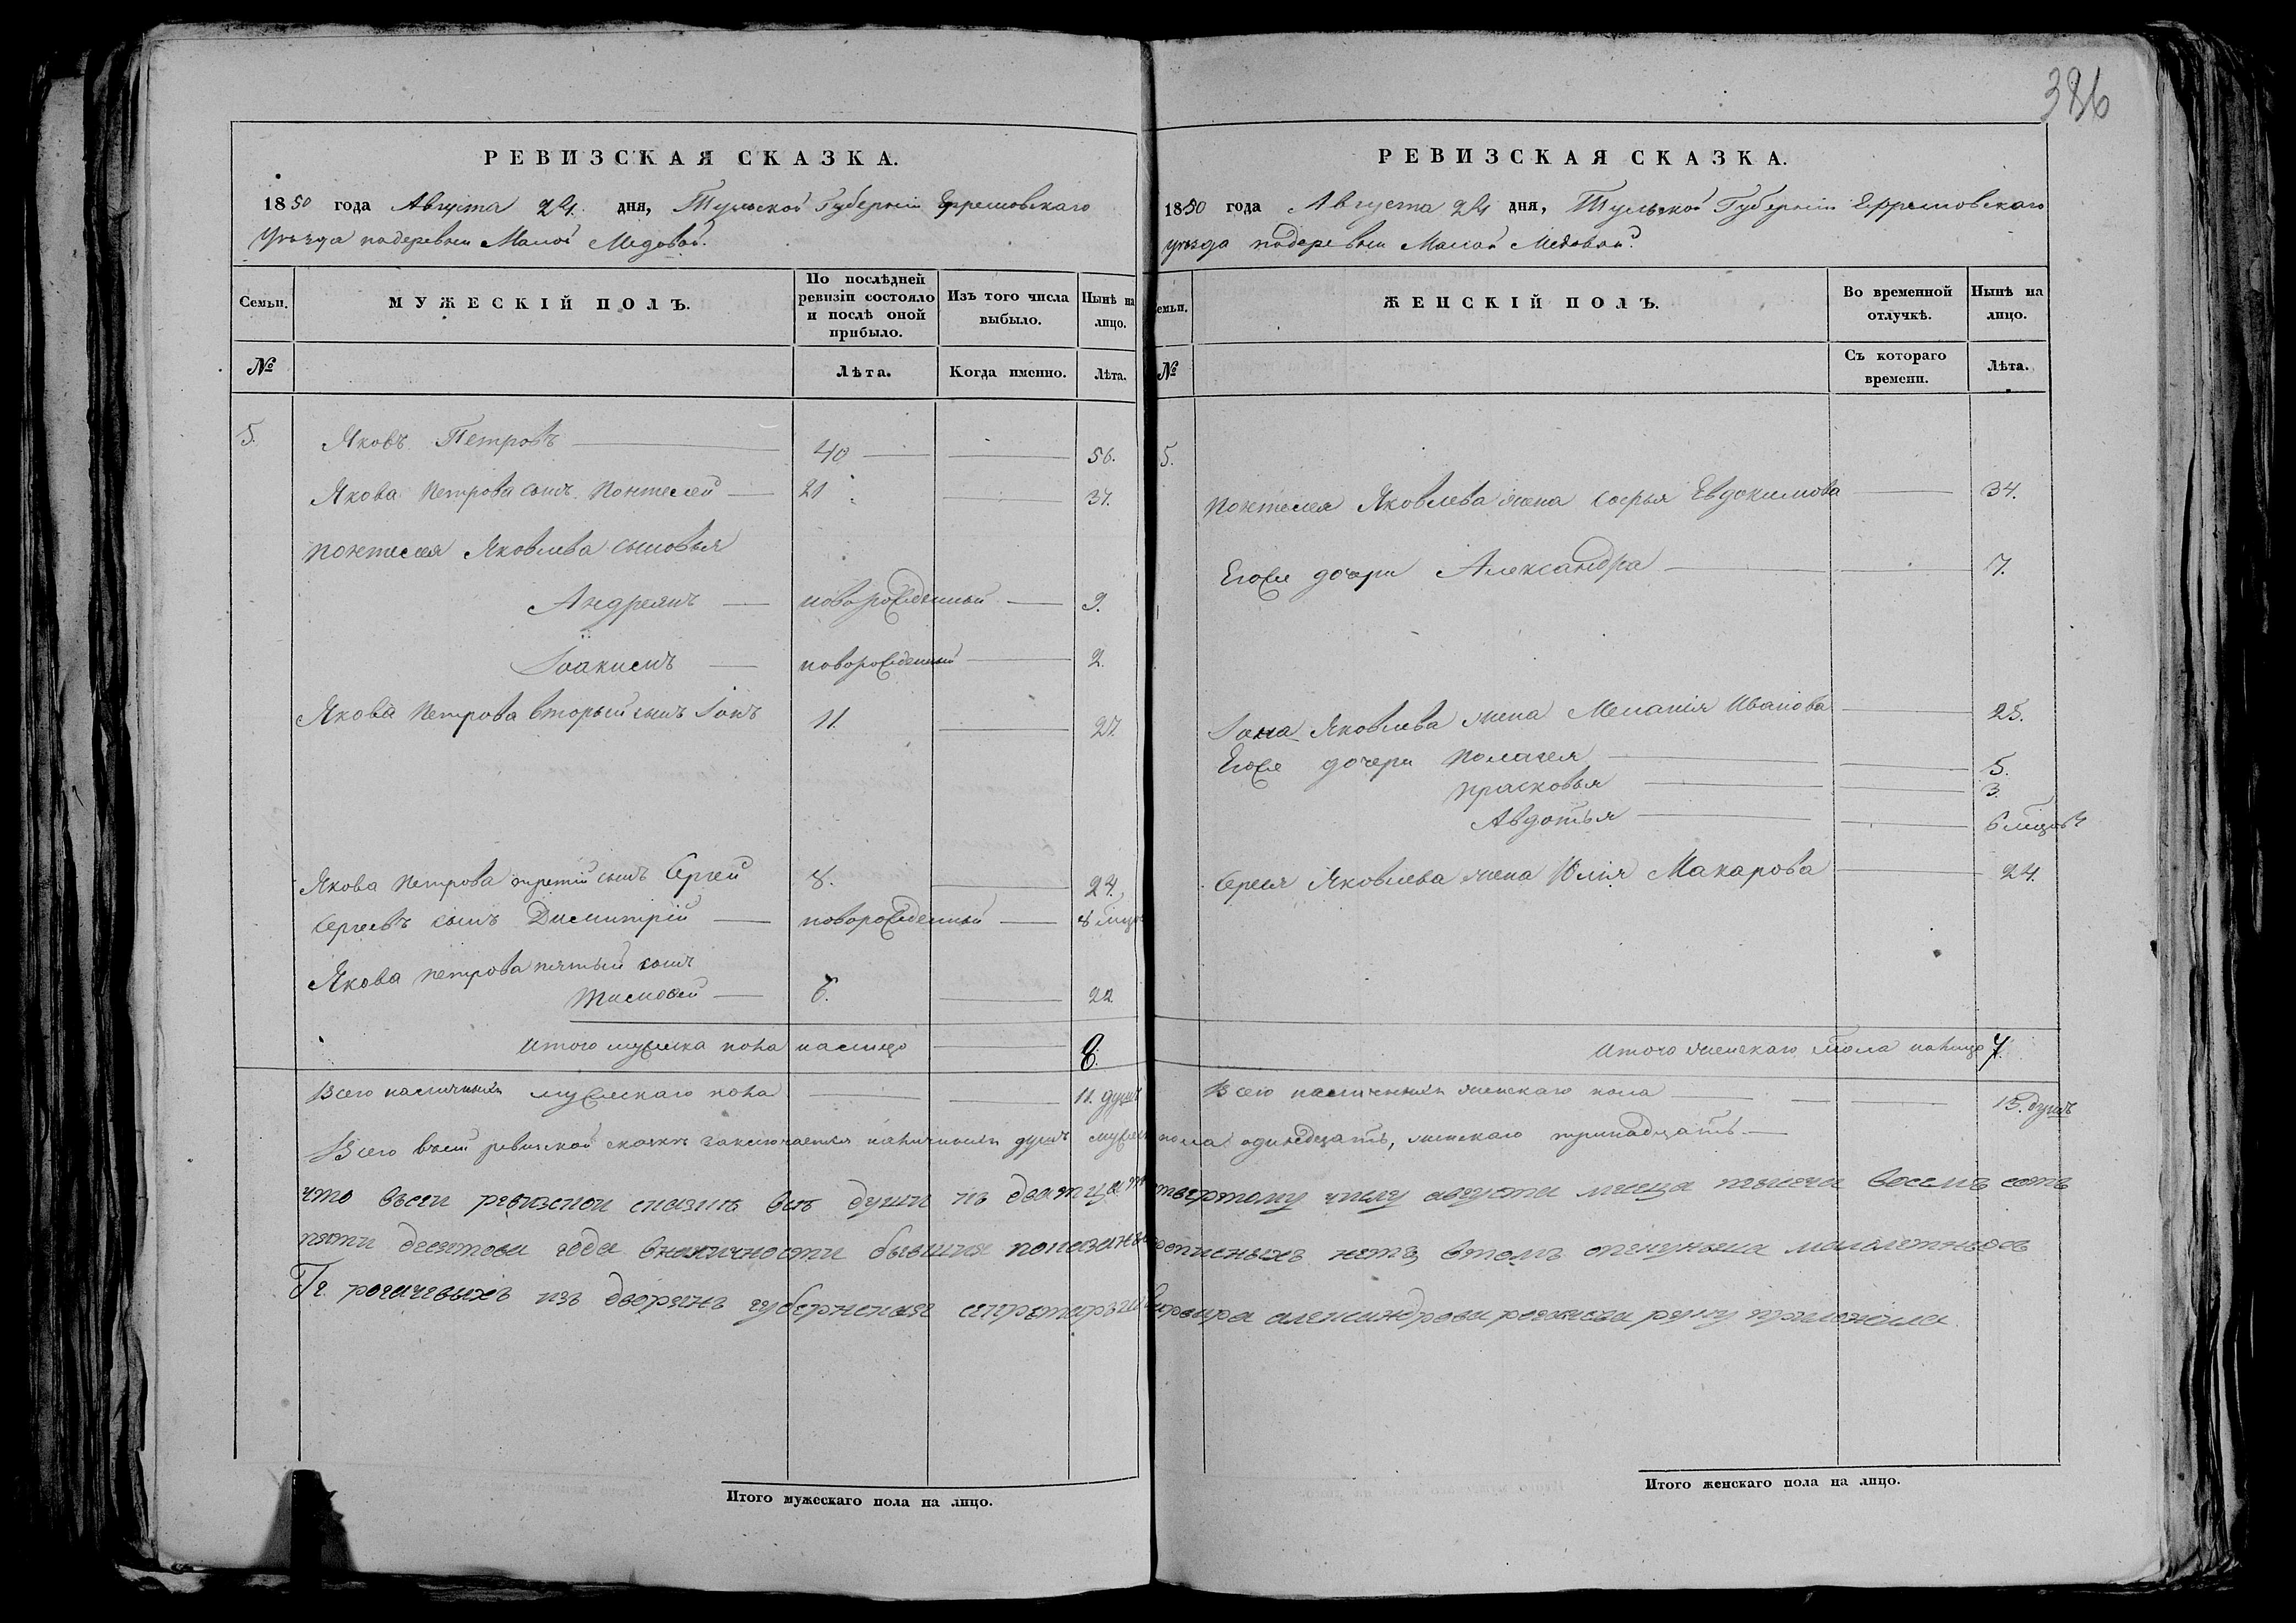 386
РЕВИЗСКАЯ СКАЗКА.
1850 года Августа 24 дня, Тульской Губернiи Ефремовскаго
уѣзда подеревни Малой Медовой.
Семьи.
МУЖЕСКІЙ ПОЛЪ.
По послѣдней ревизіи состояло и послѣ оной прибыло.
Изъ того числа выбыло.
Нынѣ на лицо.
№
Лѣта.
Когда именно.
Лѣта.
5. Яковъ Петровъ 40 56.
Якова Петрова сынъ Понтелей 21 37.
Понтелея Яковлева сыновья
Андреянъ новорожденный 9.
Іоакимъ новорожденный 2.
Якова Петрова вторый сынъ Іонъ 11. 27.
Якова Петрова третiй сынъ Сергей 8. 24.
Сергеевъ сынъ Димитрiй новорожденный 8 мцо
Якова Петрова пятый сынъ
Тимофей 6. 22
Итого мужеска пола налицо 8.
Всего наличныхъ мужескаго пола 11. душъ
РЕВИЗСКАЯ СКАЗКА.
1850 года Августа 24 дня, Тульской Губернiи Ефремовскаго
уѣзда подеревни Малой Медовой.
емьи.
ЖЕНСКІЙ ПОЛЪ.
Во временной отлучкѣ.
Нынѣ на лицо.
№
Съ котораго времени.
Лѣта.
5.
Понтелея Яковлева жена Софья Евдокимова 34.
Егоже дочери Александра 7.
Іона Яковлева жена Меланiя Иванова 25.
Егоже дочери Полагея 5.
Прасковья 3.
Авдотья 6 мцовъ
Сергея Яковлева жена Юлiя Макарова 24.
Итого женскаго пола налицо 7.
Всего наличныхъ женскаго пола 13. душъ
Всего вьсей ревиской скаскѣ заключается наличныхъ душъ мужеск пола одинадцать, женскаго тринадцать
что вьсеи ревизскои сказкѣ всѣ души къ дватцать четвертому числу августа месеца тысеча восемъ сотъ
пяти десятова года вналичности бывшия показаны прописныхъ нетъ, втомъ опекунъша малолетныхъ
Гг. рогачевыхъ изъ дворянъ губернская секретарьша александрова рогачева руку приложила
Итого мужескаго пола на лицо.
Итого женскаго пола на лицо.